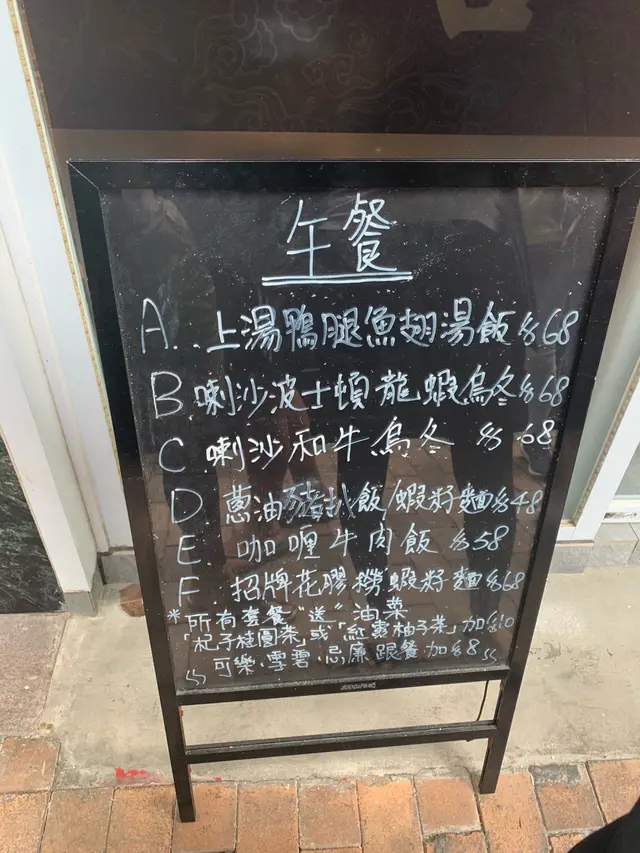 午餐
A. 上湯鴨腿魚翅湯飯 $68
B 喇沙波士頓龍蝦烏冬 $68
C 喇沙和牛烏冬 $68
D 蔥油豬扒飯/蝦籽麵 $48
E. 咖喱牛肉飯 $58
F. 招牌花膠撈蝦籽麵 $68
*所有套餐"送"油菜
「杞子桂圓茶」或「紅棗柚子茶」加$10
可樂.雪碧.忌廉跟餐加$8